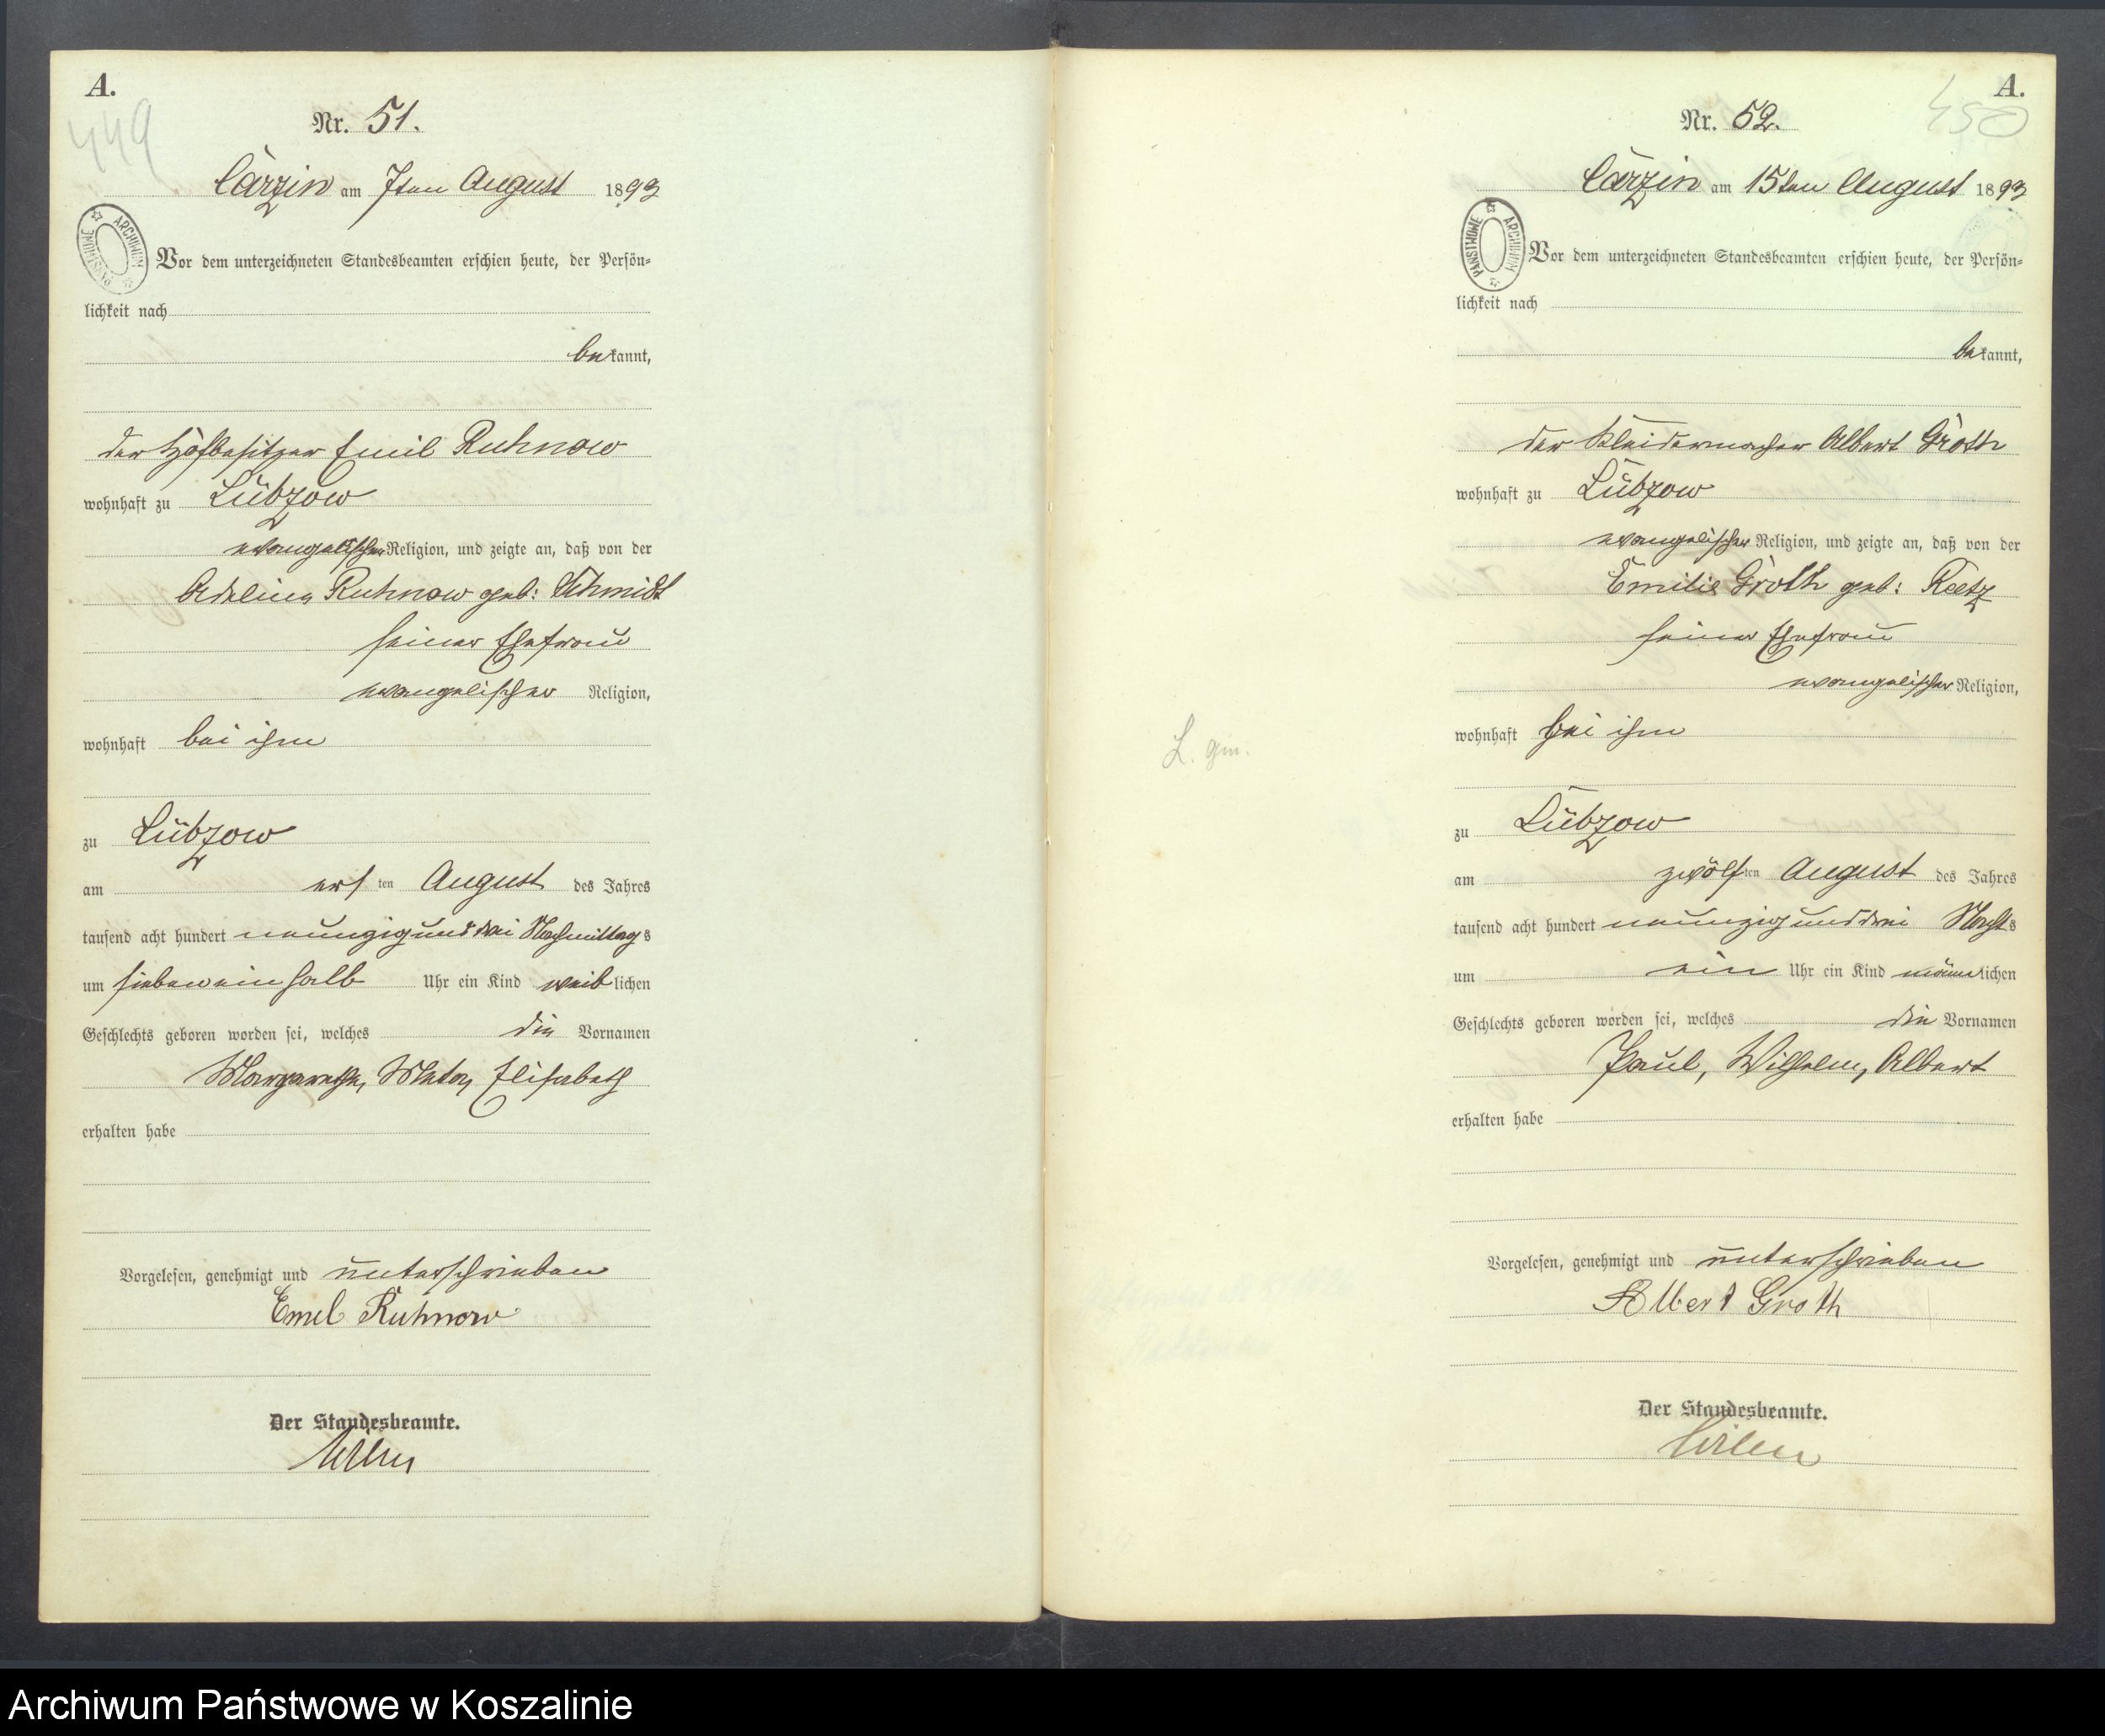 A.
449
Nr. 51.
Carzin am 7ten August 1893
ARCHIWUM PAŃSTWOWE
Vor dem unterzeichneten Standesbeamten erschien heute, der Persön-
lichkeit nach
bekannt,
der Hofbesitzer Emil Ruhnow
wohnhaft zu Lübzow
evangelischer Religion, und zeigte an, daß von der
Adeline Ruhnow geb: Schmidt
seiner Ehefrau
evangelischer Religion,
wohnhaft bei ihm
zu Lübzow
am ersten August des Jahres
tausend acht hundert neunzig und drei Nachmittags
um sieben ein halb Uhr ein Kind weiblichen
Geschlechts geboren worden sei, welches die Vornamen
Margarethe, Meta, Elisabeth
erhalten habe
Vorgelesen, genehmigt und unterschrieben
Emil Ruhnow
Der Standesbeamte.
A.
450
Nr. 52.
Carzin am 15ten August 1893
ARCHIWUM PAŃSTWOWE
Vor dem unterzeichneten Standesbeamten erschien heute, der Persön-
lichkeit nach
bekannt,
der Kleidermacher Albert Groth
wohnhaft zu Lübzow
evangelischer Religion, und zeigte an, daß von der
Emilie Groth geb: Reetz
seiner Ehefrau
evangelischer Religion,
wohnhaft bei ihm
L. gm.
zu Lübzow
am zwölften August des Jahres
tausend acht hundert neunzig und drei Nachts
um ein Uhr ein Kind männlichen
Geschlechts geboren worden sei, welches die Vornamen
Paul, Wilhelm, Albert
erhalten habe
Vorgelesen, genehmigt und unterschrieben
Albert Groth
Der Standesbeamte.
Archiwum Państwowe w Koszalinie